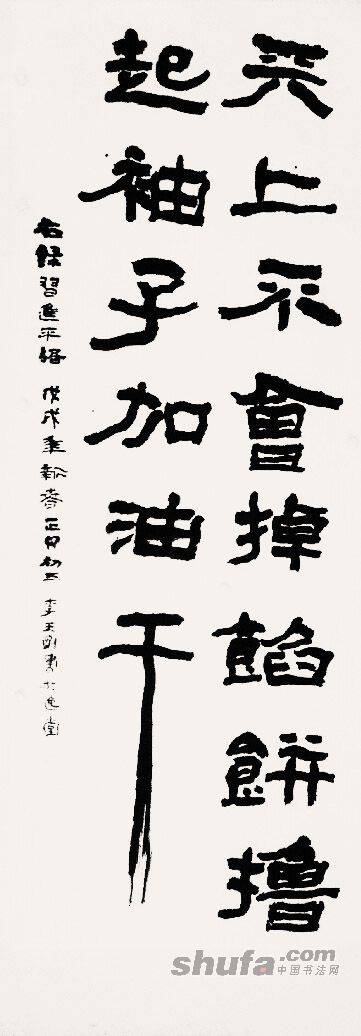 天上不會掉餡餅擼
起袖子加油干
右録習近平語 戊戌年新春正月初五 李玉剛書於逸堂
shufa.com
中国书法网